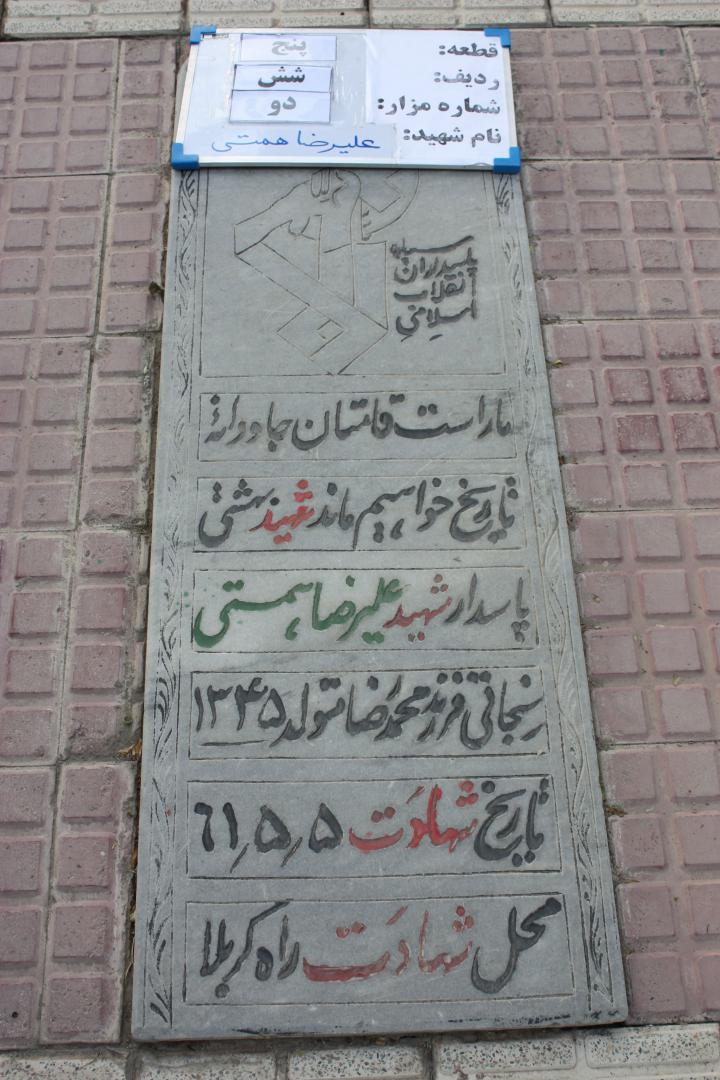 قطعه: پنج
ردیف: شش
شماره مزار: دو
نام شهید: علیرضا همتی
سپاه
پاسداران
انقلاب
اسلامی
ماراست قامتان جاودانۀ
تاریخ خواهیم ماند شهید بهشتی
پاسدار شهید علیرضا همتی
رنجاتی فرزند محمدرضا متولد ۱۳۴۵
تاریخ شهادت ۵٫۵٫۶۱
محل شهادت راه کربلا